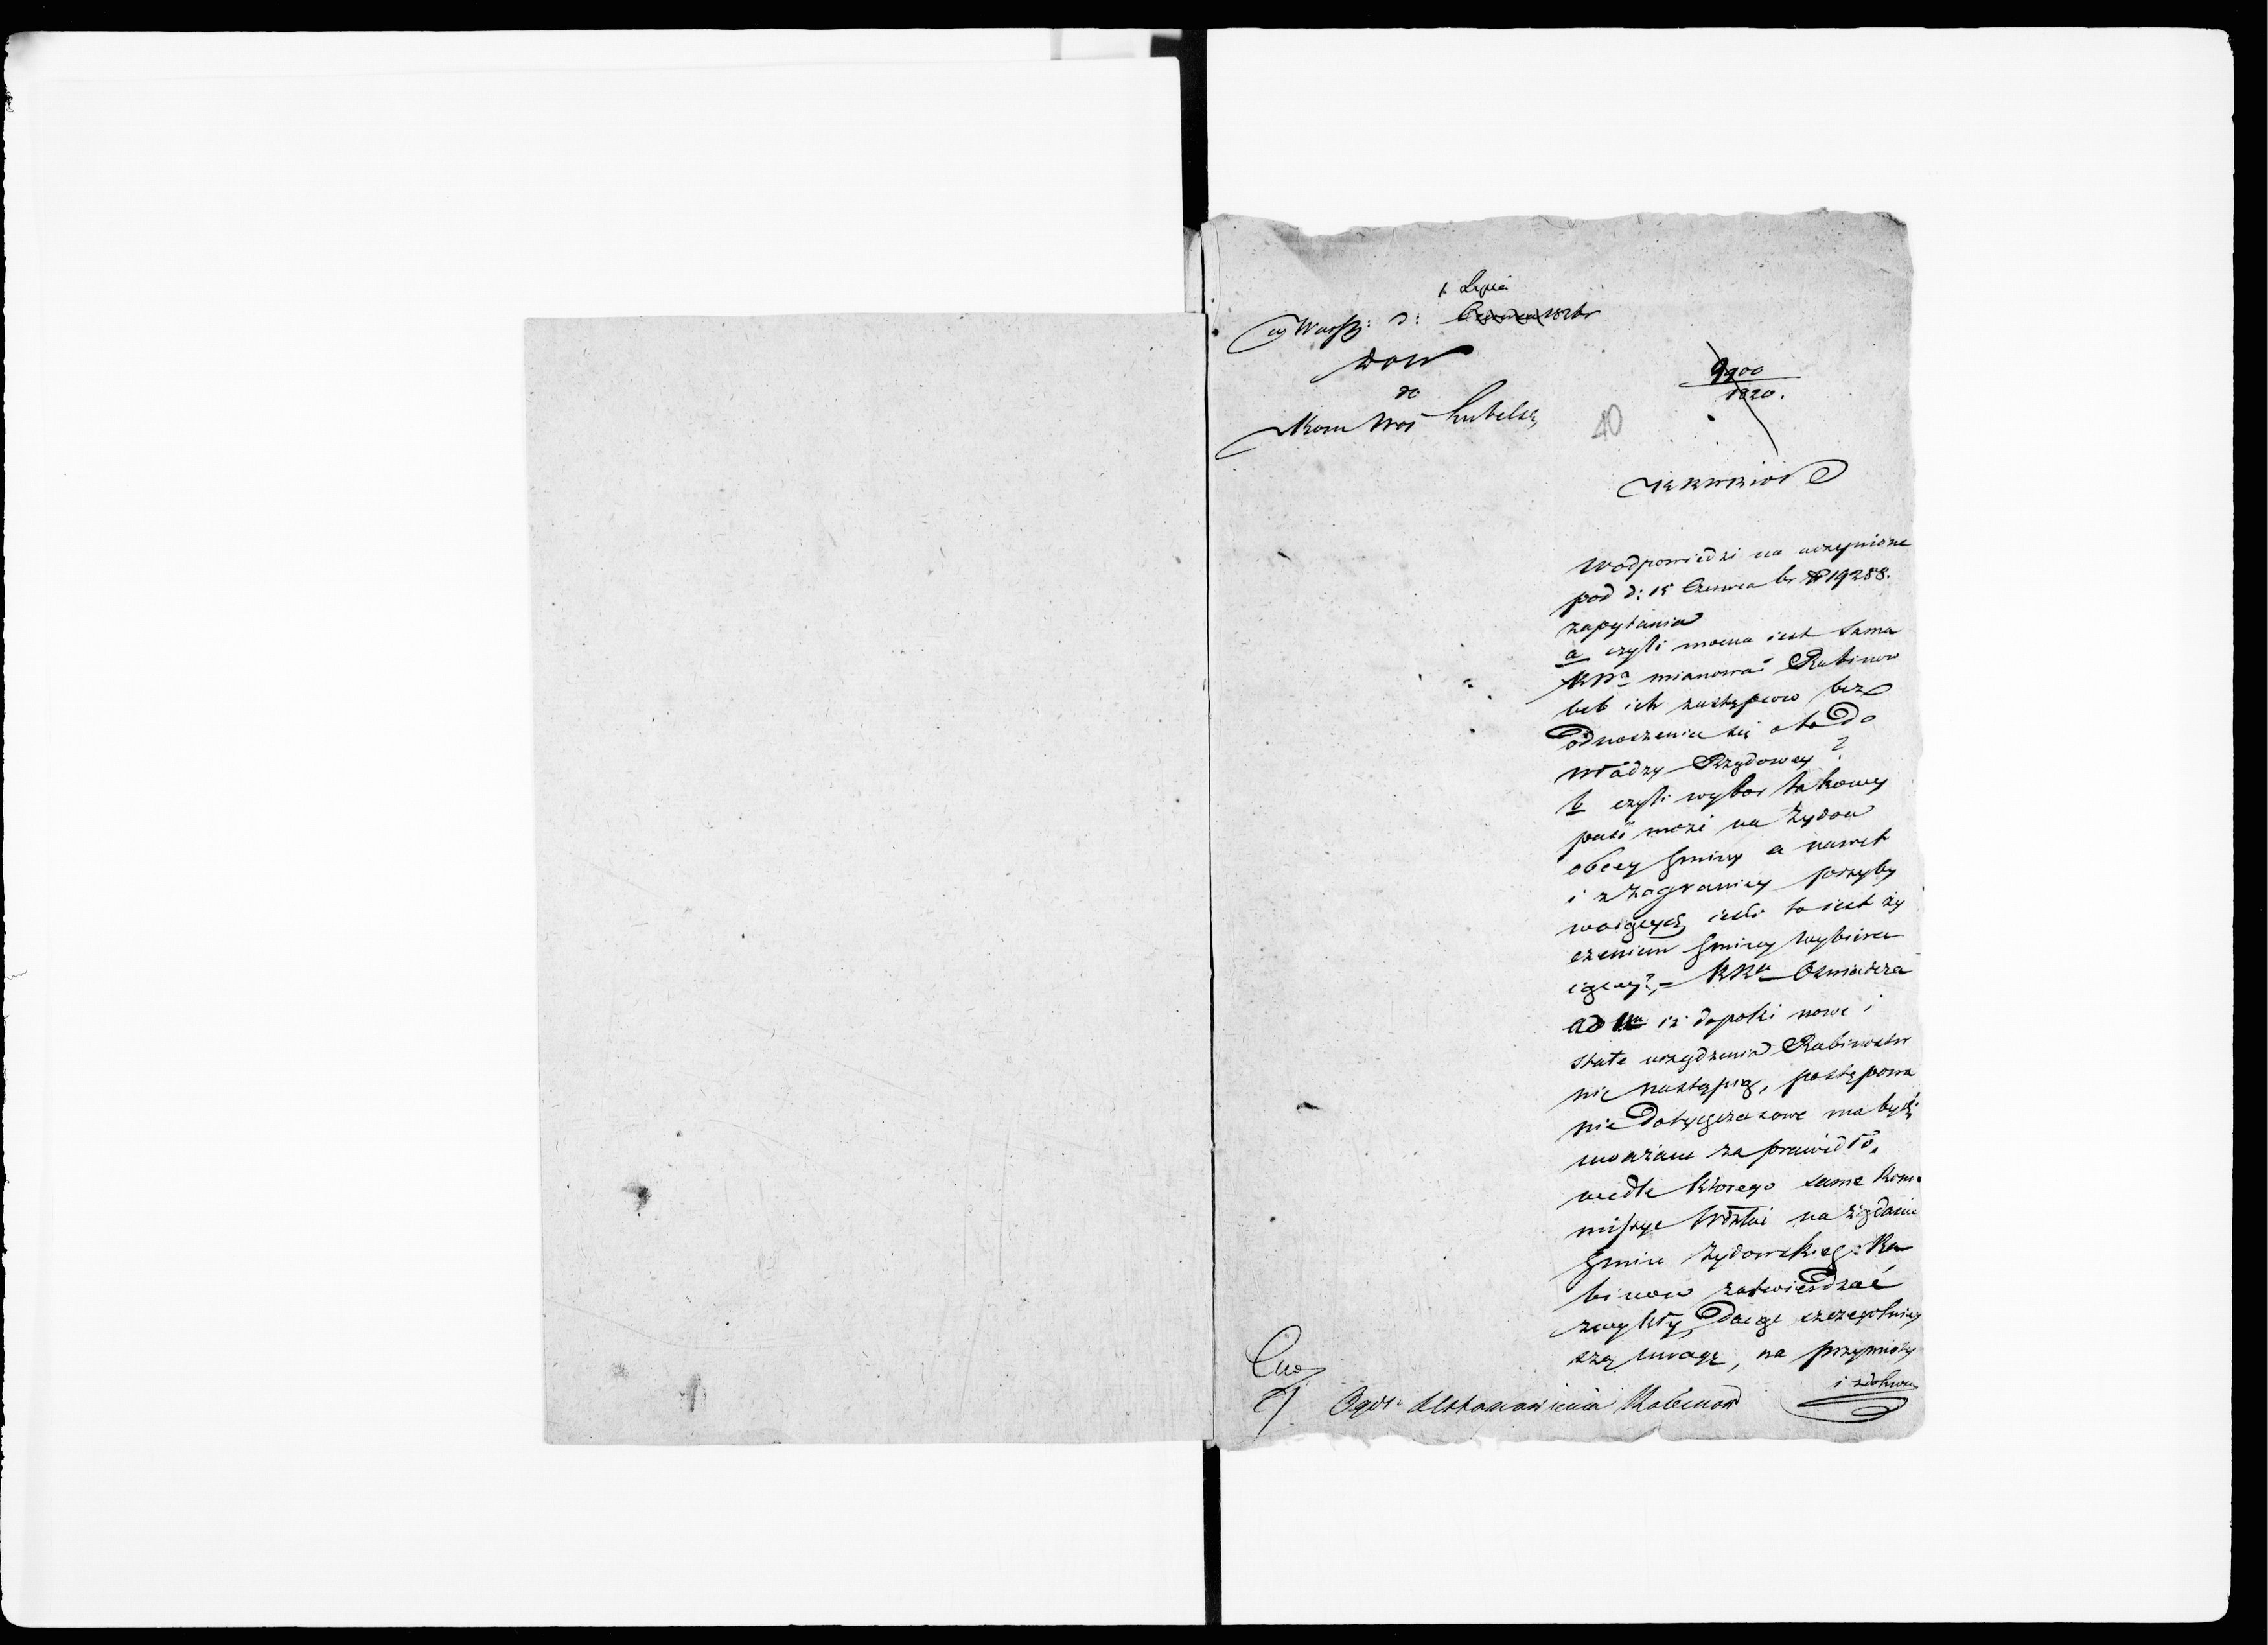 1. Lipca
w Warsz: d: Czerwca 182br
WOW
do
Kom Woj Lubelsk
9900
1820.
40
Wodpowiedzi na uczynione
pod d: 15 Czerwca br N 19288.
zapytania
a czyli mocna iest sama
KWa mianować Rabinow
lub ich zastępcow bez
odnoszenia się oto do
władzy Rządowey?
b czyli wybor takowy
paść może na Żydow
obcey Gminy a nawet
i z zagranicy przyby
waiących ieśli to iest ży
czeniem Gminy wybiera
iącey?, – KRa Oświadcza
ad 1m iż dopoki nowe i
stałe urządzenia Rabinostw
nie nastąpią, postępowa
nie dotychczasowe ma bydź
uważane za prawidło,
wedle ktorego same Kom
missye Wdzkie na żądanie
Gmin Żydowskich Ra
binow zatwierdzać
zwykły, daiąc szczegolniey
szą uwagę, na przymioty
i
Ogol: Ustanowienia Rabinow